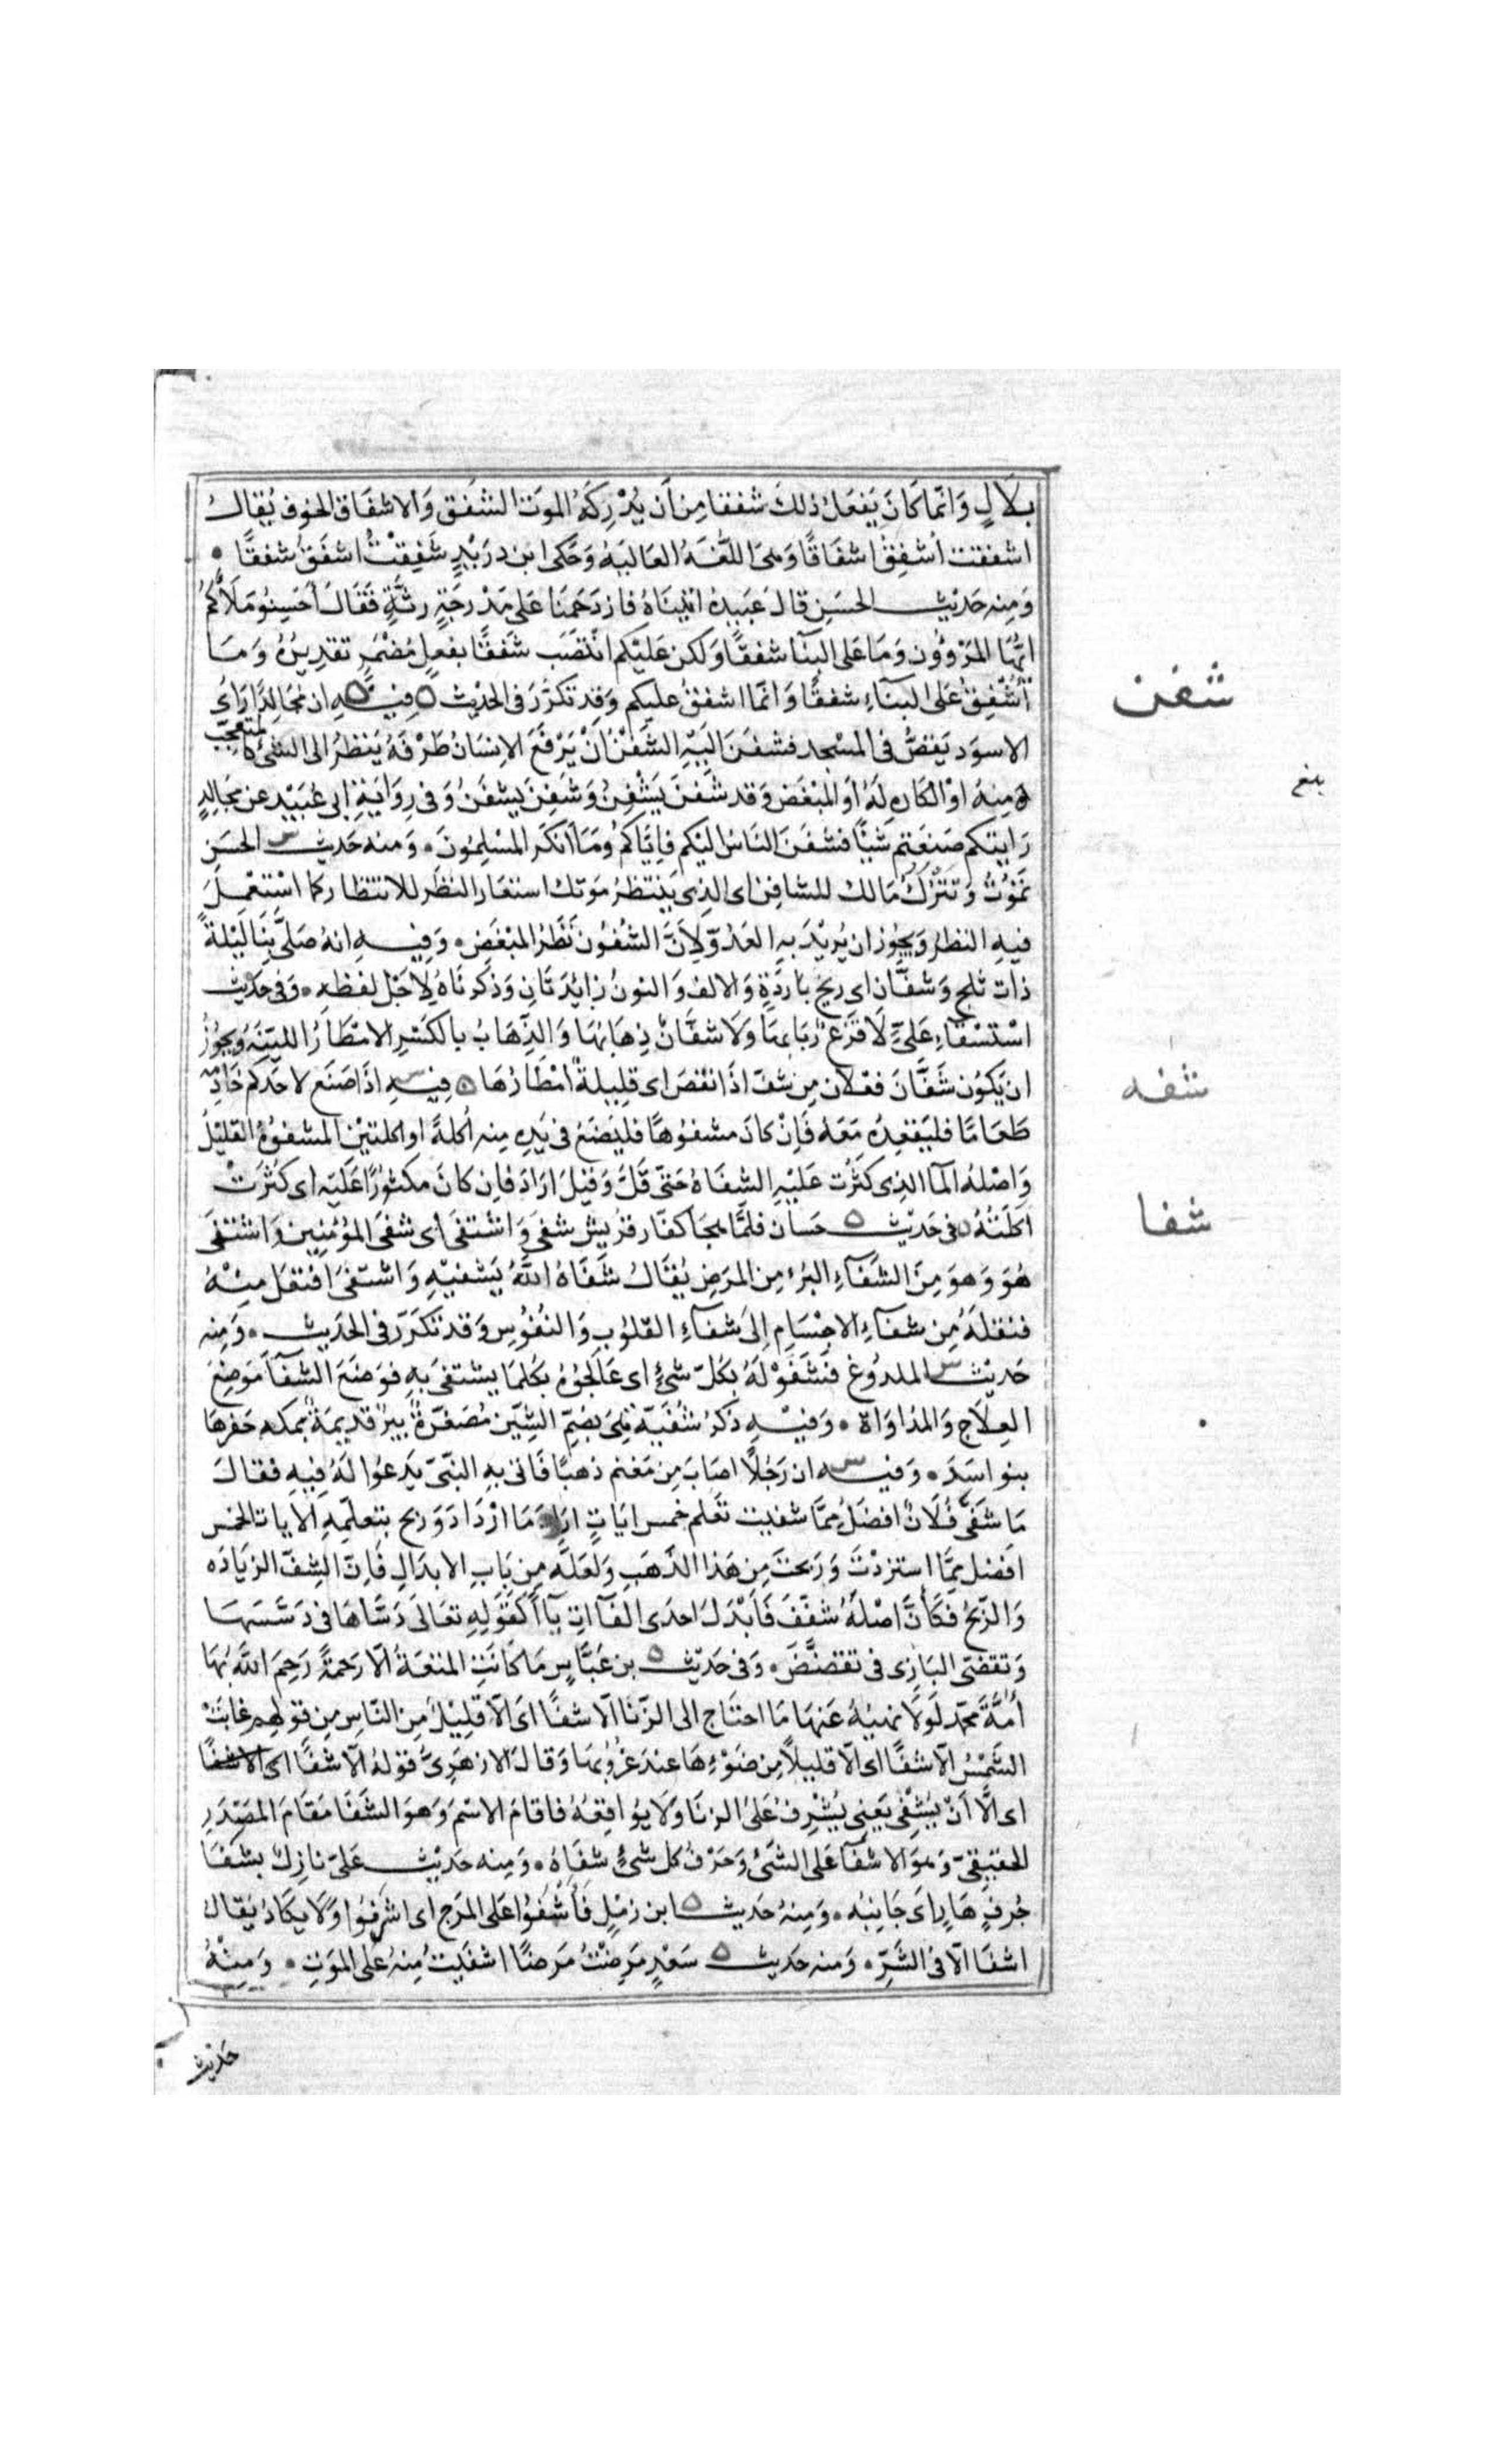 بلال وانما كان يفعل ذلك شفقا من ان يدركه الموت الشفق والاشفاق الخوف يقال
اشفقت اشفق اشفاقا وهى اللغة العالية وحكى ابن دريد شفقت اشفق شفقا
ومنه حديث الحسن قال عبيدة اتيناه فازدحمنا على مدرجة رثة فقال احسنوا ملاكم
ايها المرؤون وما على البنا شفقا ولكن عليكم انتصب شفقا بفعل مضمر تقديره وما
اشفق على البناء شفقا وانما اشفق عليكم وقد تكرر فى الحديث ه فيه ان مجالدا راى
شفن
الاسود يقص فى المسجد فشفن اليه الشفن ان يرفع الانسان طرفه ينظر الى الشئ كالمتعجب
منه او الكاره له او المبغض وقد شفن يشفن وشفن يشفن وفى رواية ابى عبيد عن مجالد
بلغ
رايتكم صنعتم شيئا فشفن الناس اليكم فاياكم وما انكر المسلمون ومنه حديث س الحسن
تموت وتترك مالك للشافن اى الذى ينتظر موتك استعار النظر للانتظار كما استعمل
فيه النظر ويجوز ان يريد به العدو لان الشفون نظر المبغض وفيه انه صلى بنا ليلة
ذات ثلج وشفان اى ريح باردة والالف والنون زائدتان وذكرناه لاجل لفظه وفى حديث
استسقاء على لا قزع ربابها ولا شفان ذهابها والذهاب بالكسر الامطار اللينة ويجوز
ان يكون شفان فعلان من شف اذا نقص اى قليلة امطارها ه فيه س اذا صنع لاحدكم خادمه
شفه
طعاما فليقعده معه فان كان مشفوها فليضع فى يده منه اكلة او اكلتين المشفوه القليل
واصله الما الذى كثرت عليه الشفاه حتى قل وقيل اراد فان كان مكثورا عليه اى كثرت
اكلته ه فى حديث ه حسان فلما هجا كفار قريش شفى واشتفى اى شفى المؤمنين واشتفى
شفا
هو وهو من الشفاء البرء من المرض يقال شفاه الله يشفيه واشتفى افتعل منه
فنقله من شفاء الاجسام الى شفاء القلوب والنفوس وقد تكرر فى الحديث ومنه
حديث س الملدوغ فشفوا له بكل شئ اى عالجوه بكلما يشتفى به فوضع الشفا موضع
العلاج والمداواة وفيه ذكر شفية هى بضم الشين مصغرة بير قديمة بمكة حفرها
بنو اسد وفيه س ان رجلا اصاب من مغنم ذهبا فاتى به النبى يدعوا له فيه فقال
ما شفى فلان افضل مما شفيت تعلم خمس ايات اراد ما ازداد وربح بتعلمه الايات الخمس
افضل مما استزدت وربحت من هذا الذهب ولعله من باب الابدال فان الشف الزيادة
والربح فكان اصله شفف فابدل احدى الفاات يا كقوله تعالى دساها فى دسسها
وتقضى البازى فى تقضض وفى حديث ه بن عباس ما كانت المتعة الا رحمة رحم الله بها
امة محمد لولا نهيه عنها ما احتاج الى الزنا الا شفا اى الا قليل من الناس من قولهم غابت
الشمس الا شفا اى الا قليلا من ضوءها عند غروبها وقال الازهرى قوله الا شفا اى الا شفا
اى الا ان يشفى يعنى يشرف على الزنا ولا يواقعه فاقام الاسم وهو الشفا مقام المصدر
الحقيقى وهو الاشفا على الشئ وحرف كل شئ شفاه ومنه حديث على نازل بشفا
جرف هار اى جانبه ومنه حديث ه ابن زمل فاشفوا على المرج اى اشرفوا ولا يكاد يقال
اشفا الا فى الشر ومنه حديث ه سعد مرضت مرضا اشفيت منه على الموت ومنه
حديث